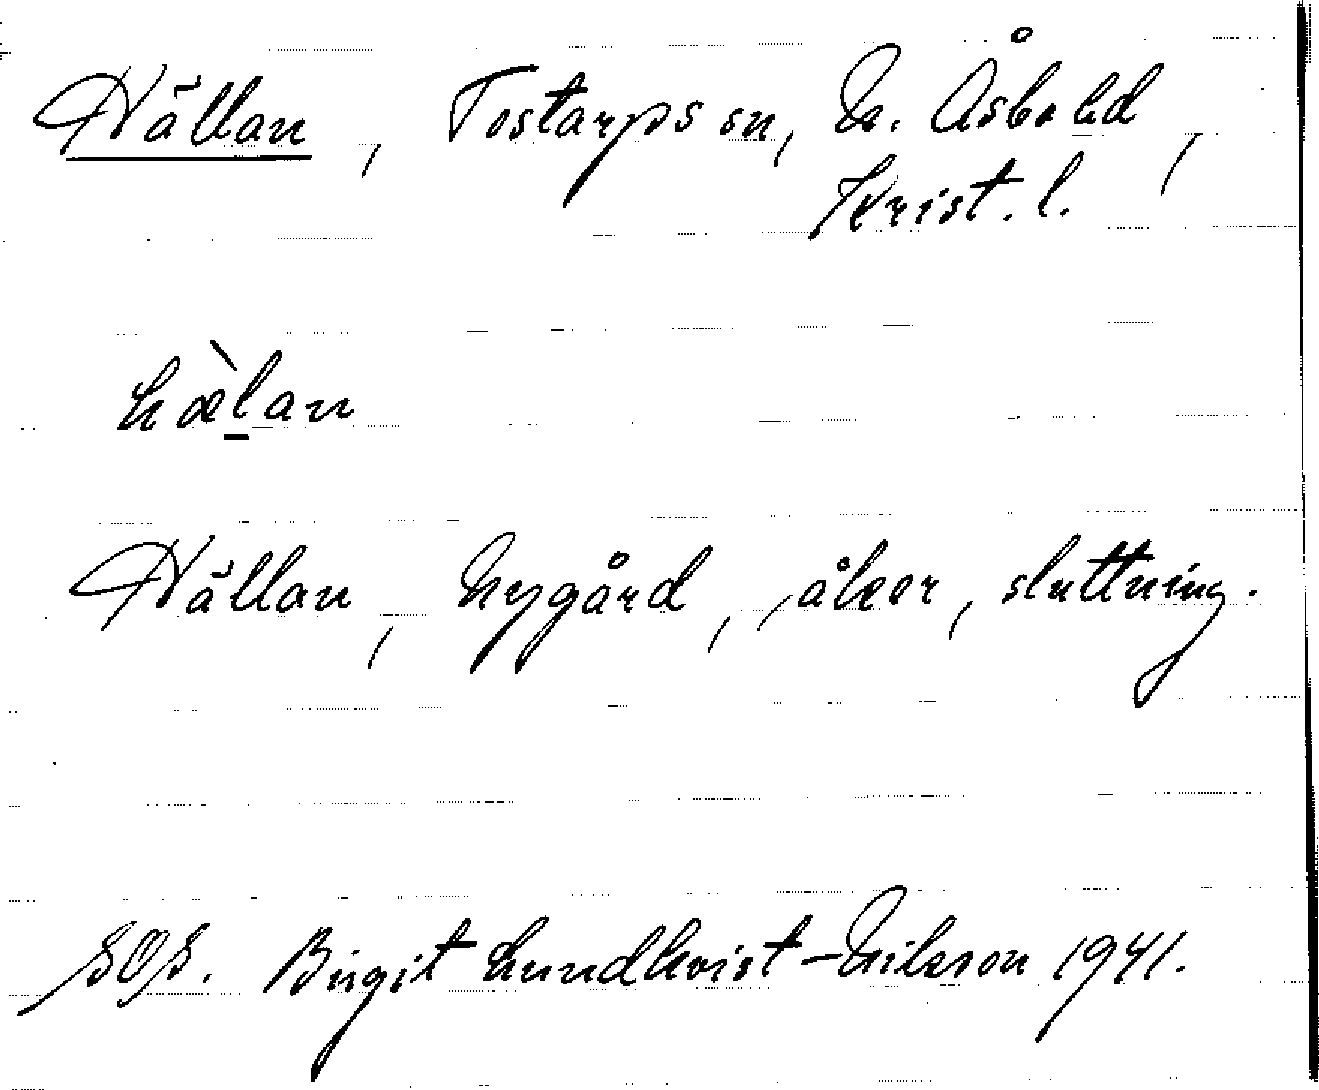 Hällan, Tostarps sn, N. Åsbo hd,
Krist. l.
hæ̀lan
Hällan, Nygård, åker, sluttning.
SOS. Birgit Lundkvist-Nilsson 1941.